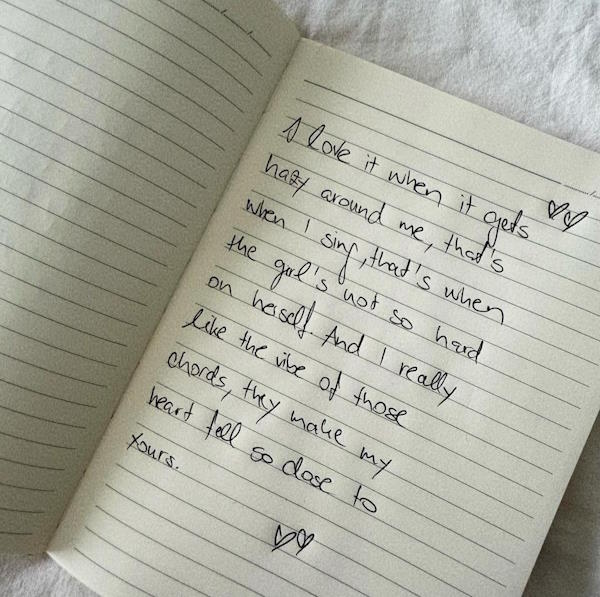 I love it when it gets
hazy around me, that's
when I sing, that's when
the girl's not so hard
on herself. And I really
like the vibe of those
chords, they make my
heart fell so close to
yours.